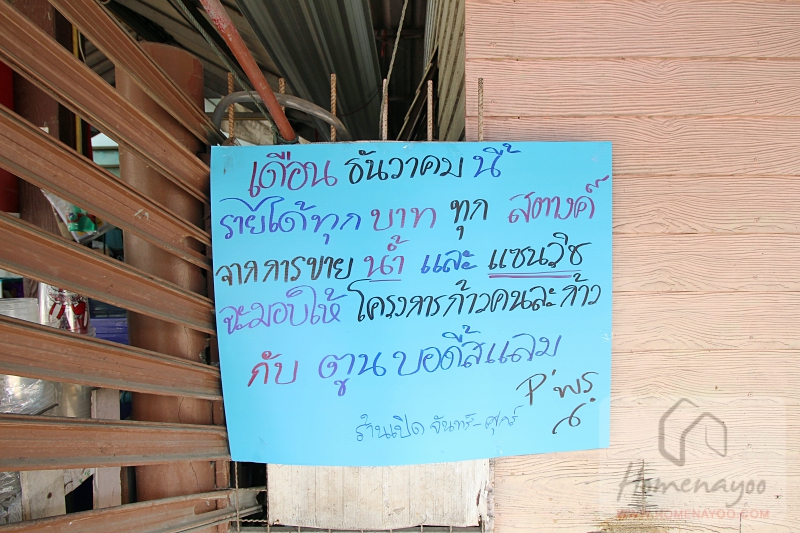 เดือน ธันวาคม นี้
รายได้ทุก บาท ทุก สตางค์
จากการขาย น้ำ และ แซนวิช
จะมอบให้ โครงการก้าวคนละก้าว
กับ ตูน บอดี้สแลม
P'พร
ร้านเปิด จันทร์-ศุกร์
Homenayoo
WWW.HOMENAYOO.COM